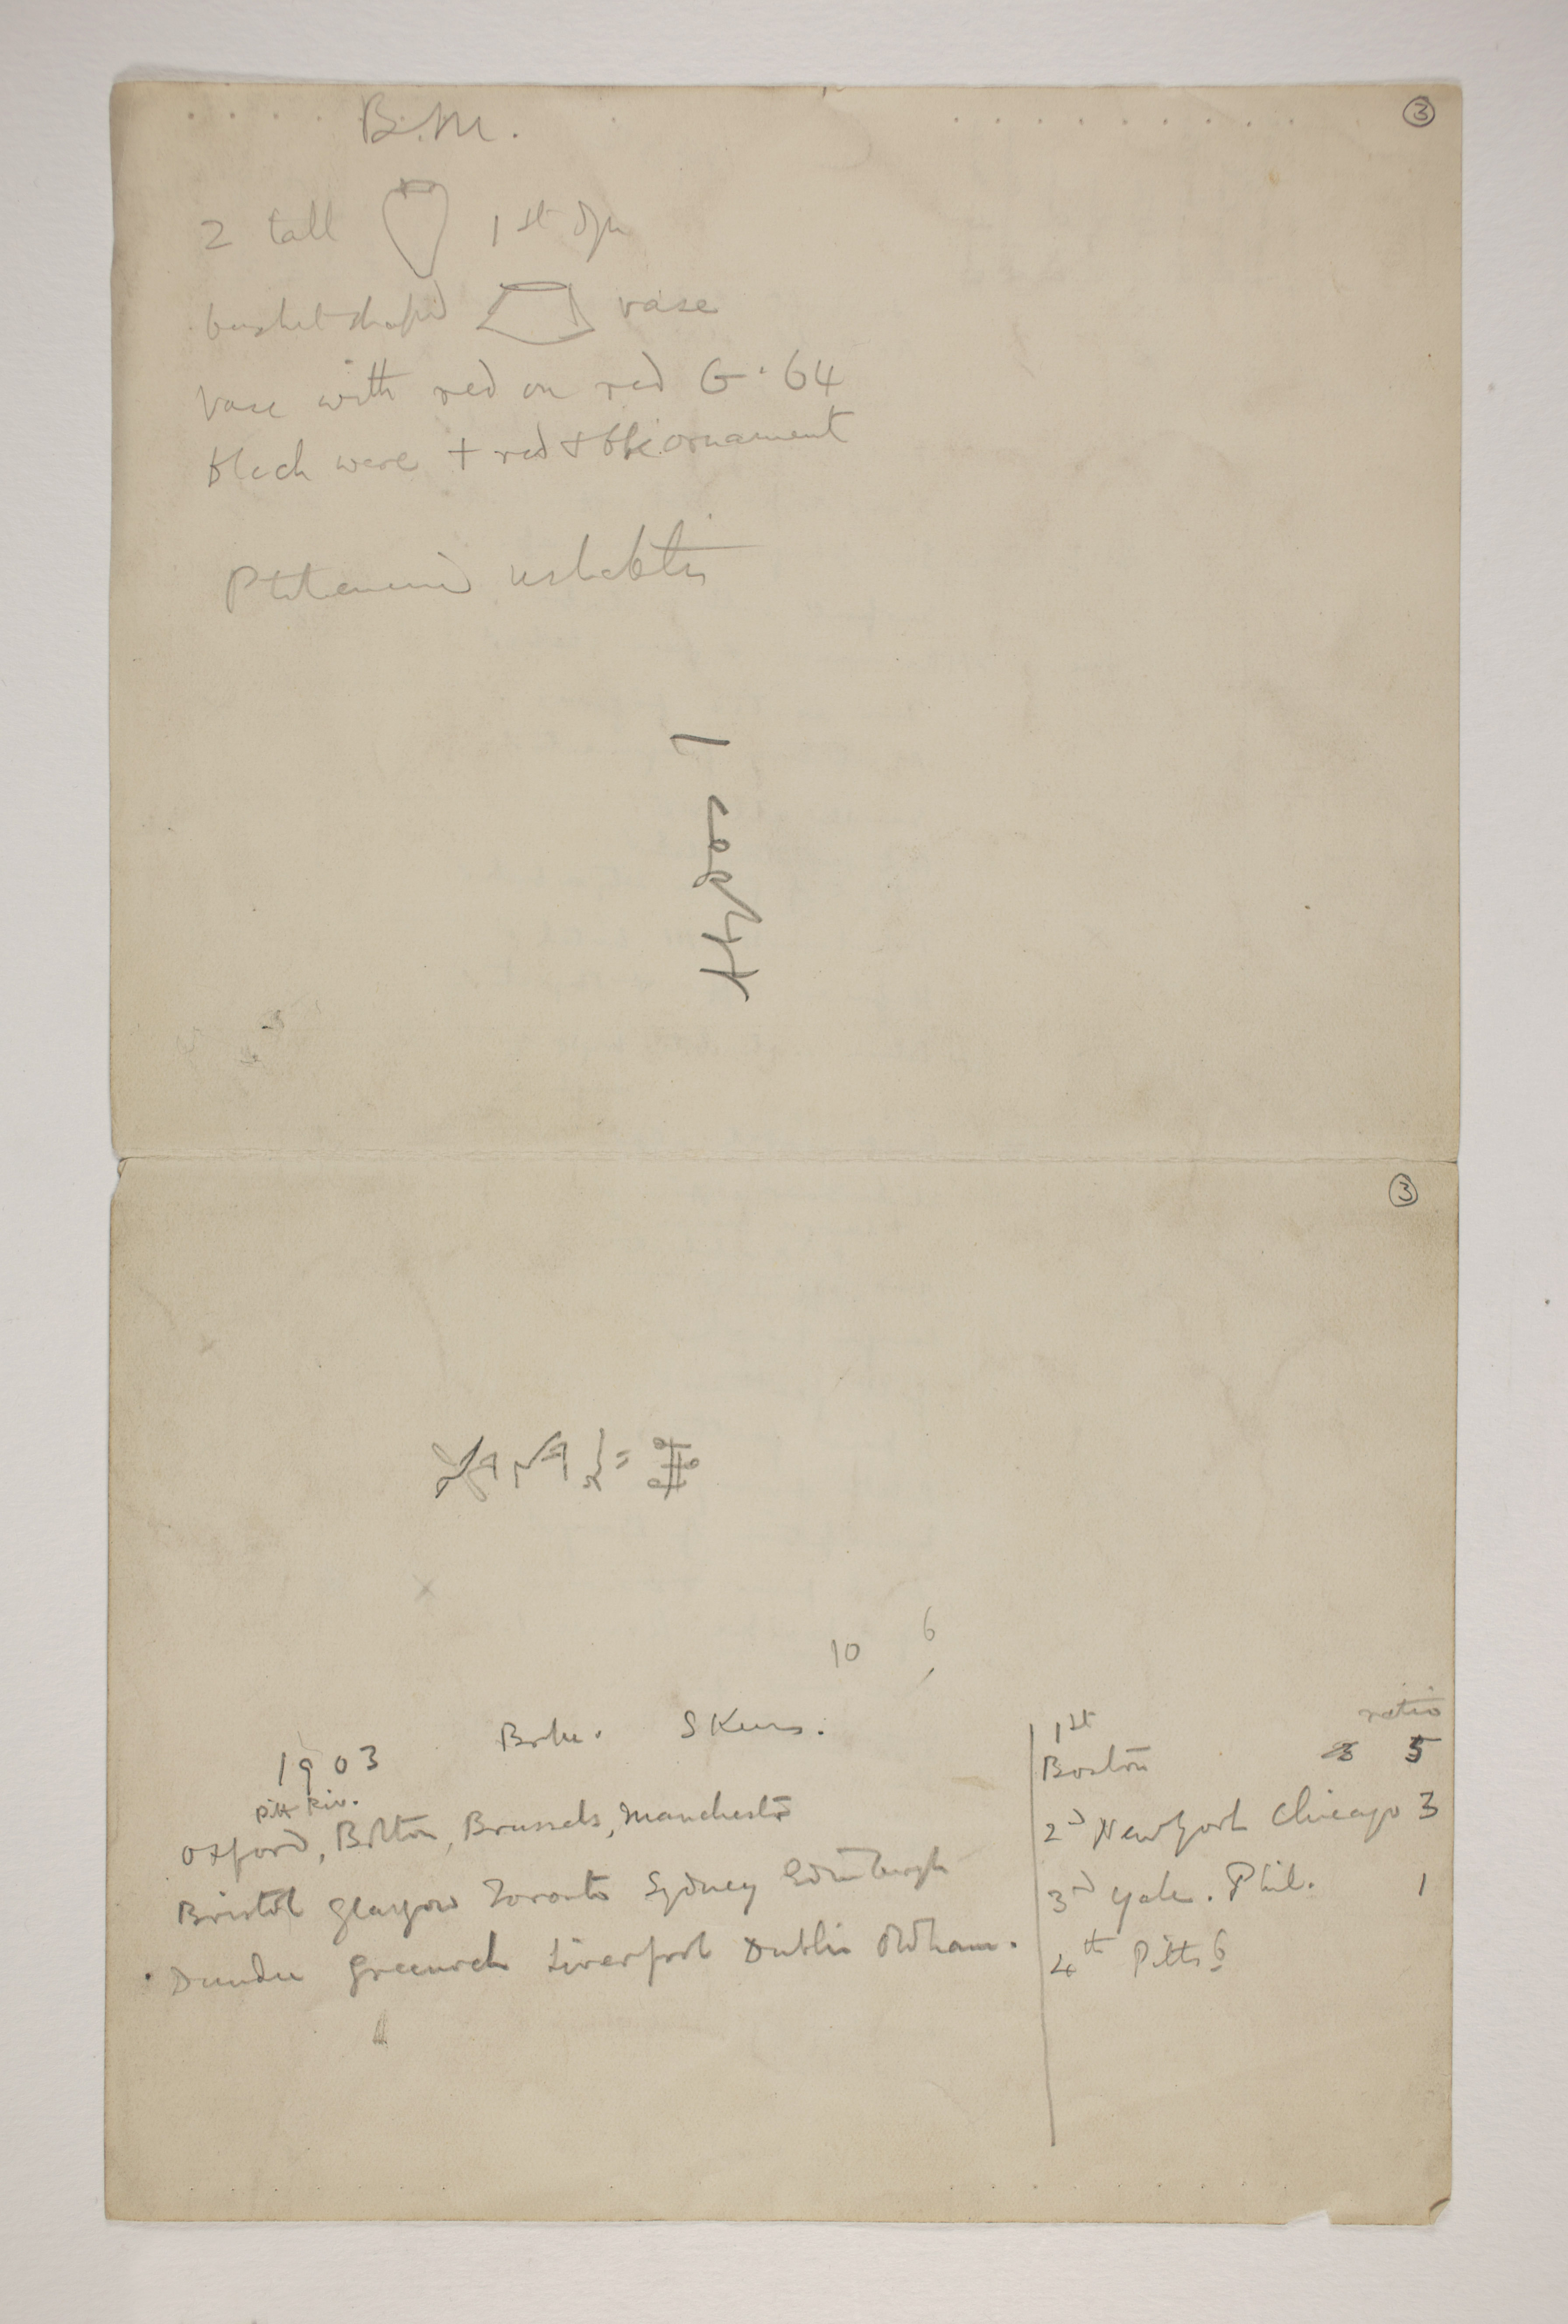 B.M.
3
2 tall 1st dyn
basket shaped vase
vase with red on red G.64
black ware + red + blk ornament
Ptolemaic ushabtis
3
10 6
1903 Skurs.
Pitt Riv.
Oxford, Bolton, Brussels, Manchester
Bristol Glasgow Toronto Sydney Edinburgh
Dundee Greenock Liverpool Dublin Oldham.
1st ratio
Boston 3 5
2d New York Chicago 3
3d Yale. Phil. 1
4th Pittsb